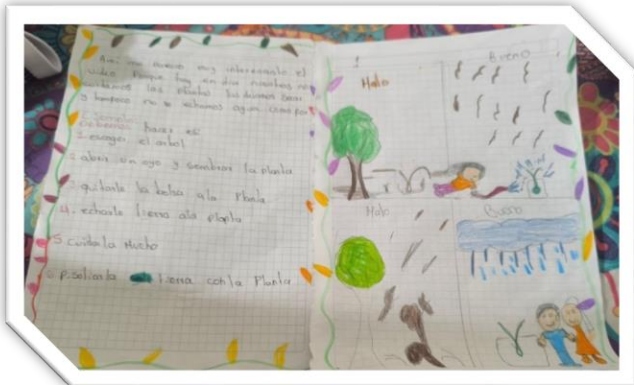 A mi me parecio muy interesante el
video Porque hoy en dia nosotros no
cuidamos las Plantas
y tampoco no le echamos agua
Debemos hacer es
1. escoger el arbol
abrir un oyo y sembrar la planta
quitarle la bolsa a la Planta
4. echarle tierra ala planta
5. Cuidala Mucho
tierra con la Planta
Malo
Bueno
Malo
Bueno